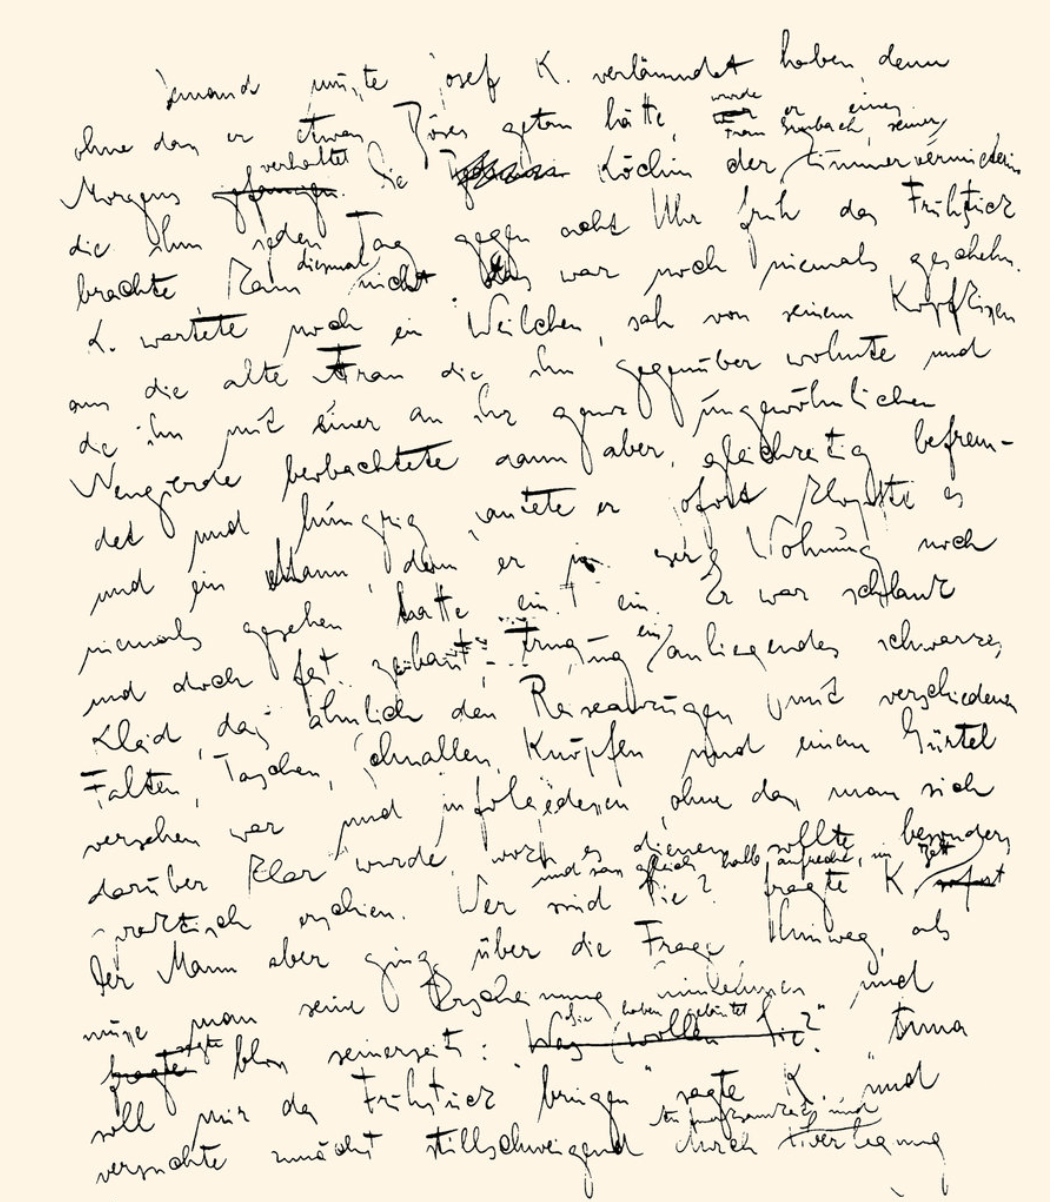 Jemand mußte Josef K. verläumdet haben, denn
ohne daß er etwas Böses getan hätte, war wurde er eines
Morgens gefangen verhaftet. Die Köchin der Frau Grubach, seiner Zimmervermieterin
die ihm jeden Tag gegen acht Uhr früh das Frühstück
brachte kam diesmal nicht. Das war noch niemals geschehn.
K. wartete noch ein Weilchen, sah von seinem Kopfkissen
aus die alte Frau die ihm gegenüber wohnte und
die ihn mit einer an ihr ganz ungewöhnlichen
Neugierde beobachtete dann aber, gleichzeitig befrem-
det und hungrig, läutete er. Sofort klopfte es
und ein Mann, den er in dieser Wohnung noch
niemals gesehen hatte trat ein. Er war schlank
und doch fest gebaut, er trug ein anliegendes schwarzes
Kleid, das ähnlich den Reiseanzügen mit verschiedenen
Falten, Taschen, Schnallen, Knöpfen und einem Gürtel
versehen war und infolgedessen, ohne daß man sich
darüber klar wurde, wozu es dienen sollte, besonders
praktisch erschien. Wer sind Sie? fragte K. sofort und saß gleich halb aufrecht im Bett
Der Mann aber ging über die Frage hinweg, als
müsse man seine Erscheinung hinnehmen und
fragte sagte bloß seinerseits: "Was wollen Sie?" Sie haben geläutet "Anna
soll mir das Frühstück bringen" sagte K. und
versuchte zunächst stillschweigend durch Aufmerksamkeit und Überlegung